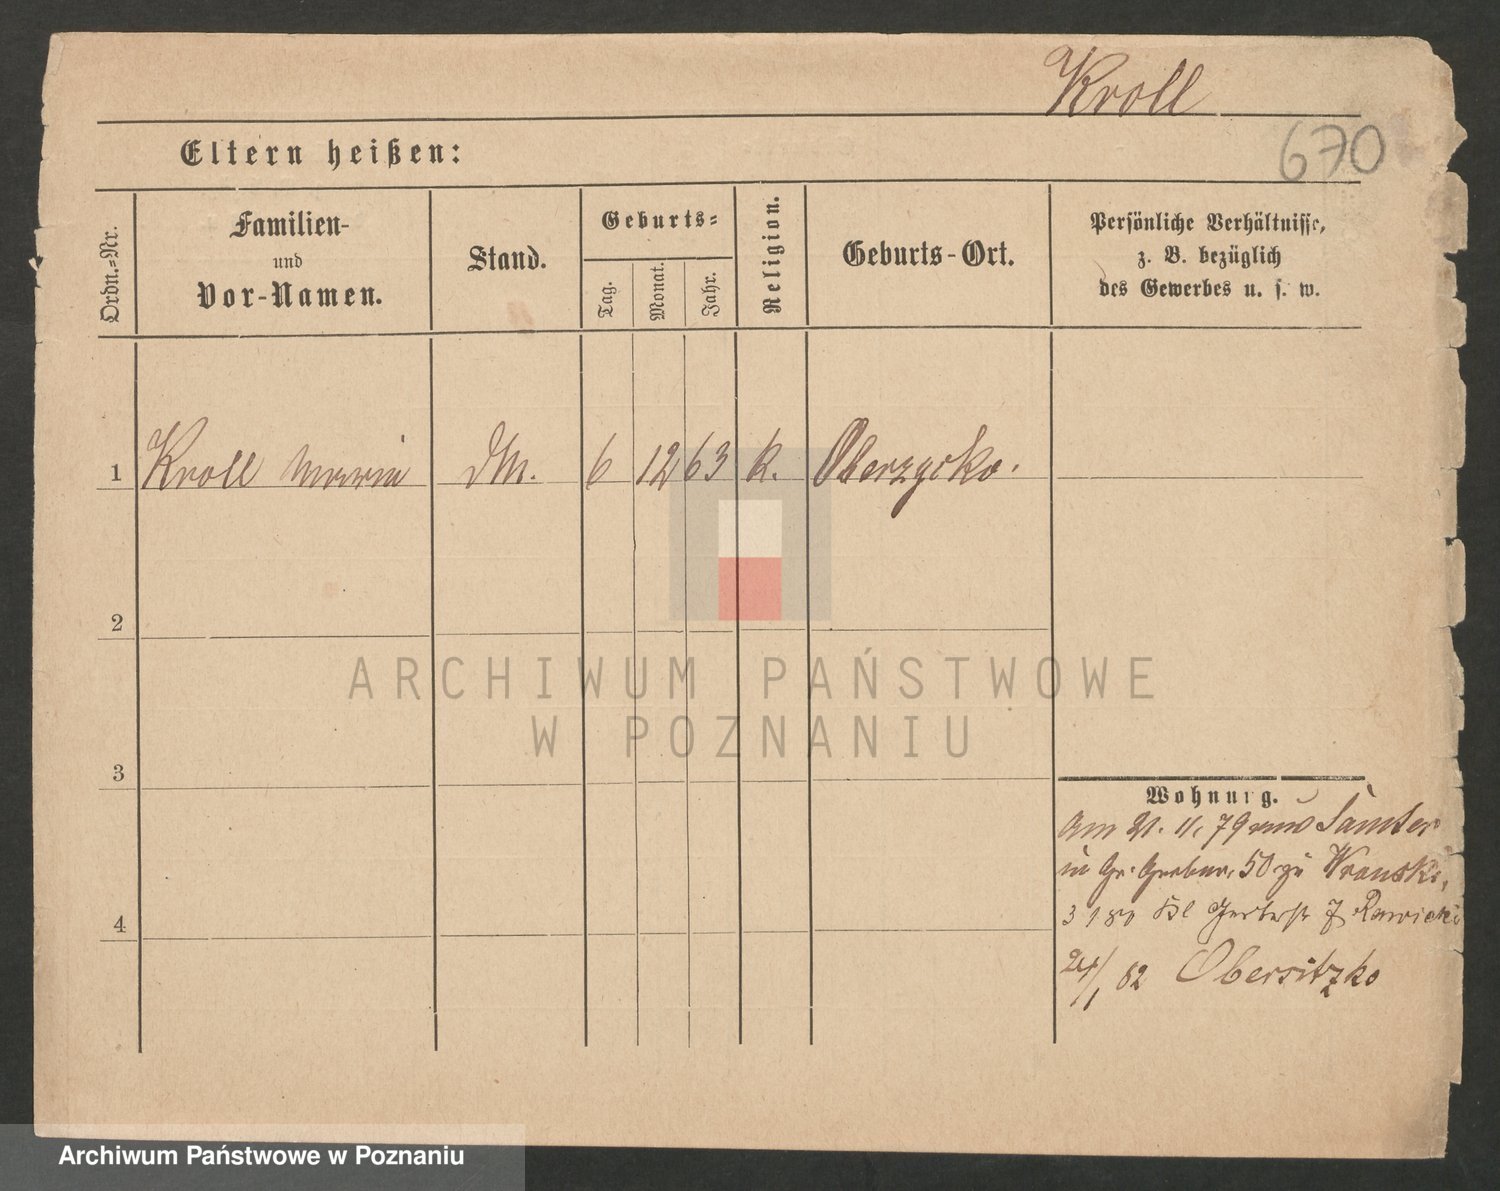 Kroll
670
Eltern heißen:
Ordn.-Nr.
Familien-
und
Vor-Namen.
Stand.
Geburts-
Tag.
Monat.
Jahr.
Religion.
Geburts-Ort.
Persönliche Verhältnisse,
z. B. bezüglich
des Gewerbes u. s. w.
1 Kroll Maria DM. 6 12 63 k. Oberzycko.
2
3
4
Wohnung.
Am 21. 11. 79 Samter
in Gr. 50 zu Wronski,
3 1 80 Kl Gerberstr 7 Rawicki
24/1 82 Obersitzko
ARCHIWUM PAŃSTWOWE
W POZNANIU
Archiwum Państwowe w Poznaniu